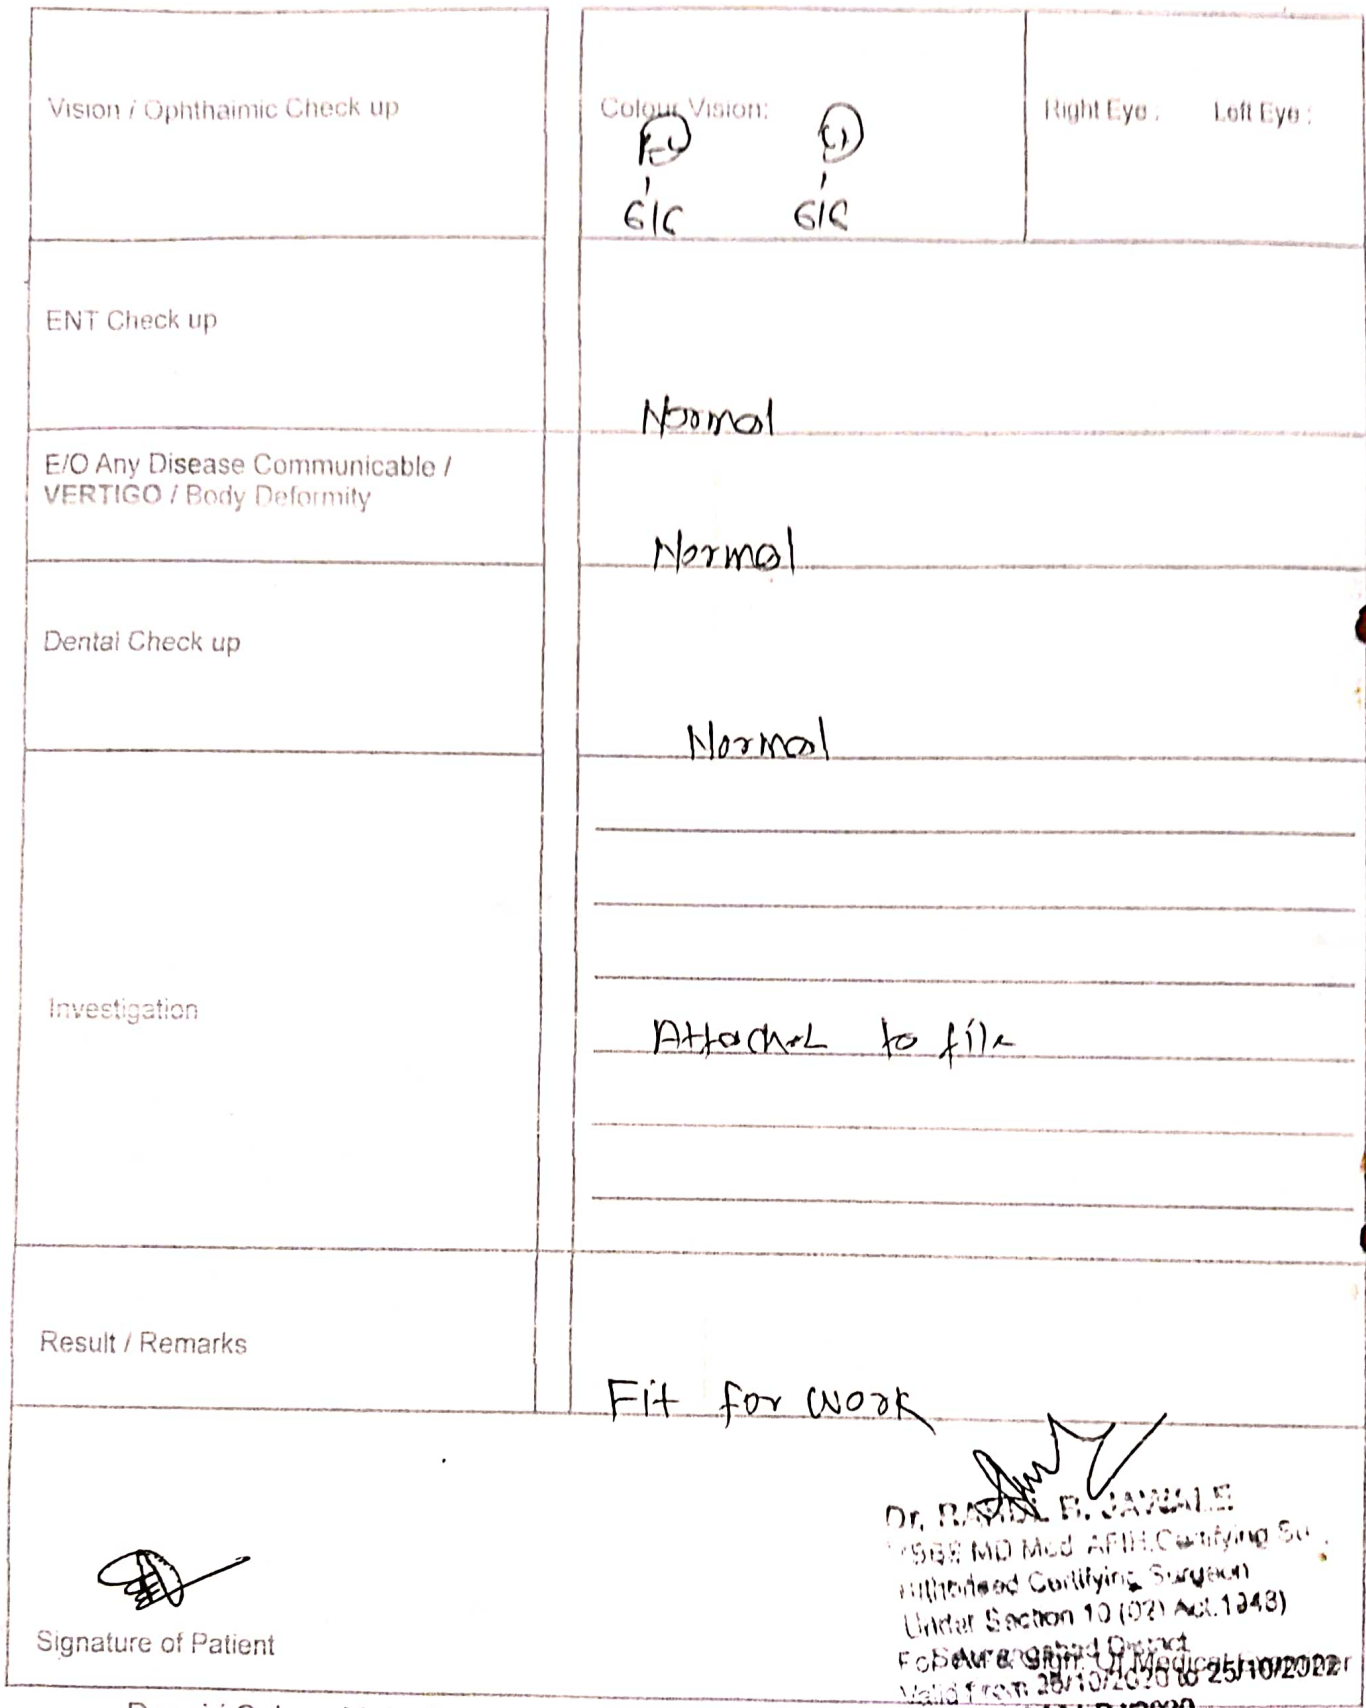 Vision / Ophthaimic Check up
Colour Vision:
Right Eye : Left Eye :
6/6 6/6
ENT Check up
Normal
E/O Any Disease Communicable /
VERTIGO / Body Deformity
Normal
Dental Check up
Normal
Investigation
Attached to file
Result / Remarks
Fit for work
Dr. R. JAWALE
MD Med AFIH.Certifying
Certifying Surgeon
Under Section 10 (02) Act.1948)
Signature of Patient
Aurangabad District
Seal & Sign. Of Medical Examiner
Valid From 26/10/2020 to 25/10/2022